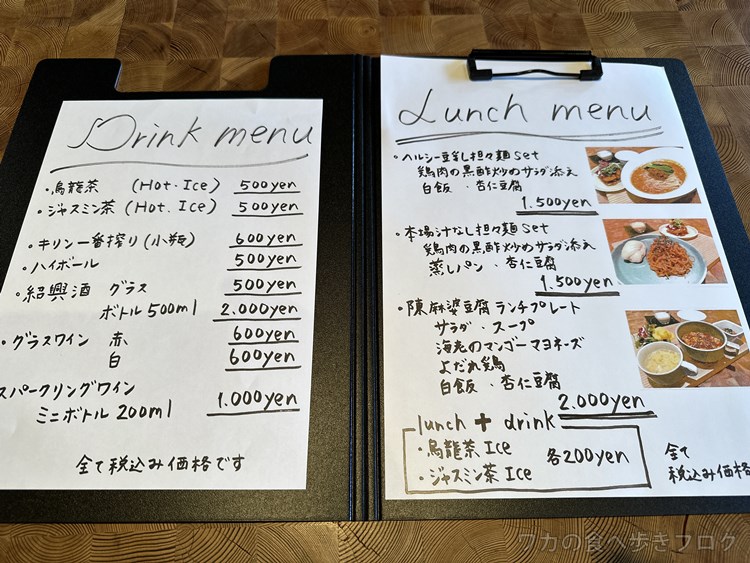 Drink menu
・烏龍茶 (Hot・Ice) 500yen
・ジャスミン茶 (Hot. Ice) 500yen
・キリン一番搾り(小瓶) 600yen
・ハイボール 500yen
・紹興酒 グラス 500yen
ボトル 500ml 2.000yen
・グラスワイン 赤 600yen
白 600yen
スパークリングワイン
ミニボトル 200ml 1.000yen
全て税込み価格です
Lunch menu
・ヘルシー豆乳し担々麺 set
鶏肉の黒酢炒めサラダ添え
白飯 ・杏仁豆腐
1.500yen
・本場汁なし担々麺 set
鶏肉の黒酢炒めサラダ添え
蒸しパン ・杏仁豆腐
1.500yen
・陳麻婆豆腐 ランチプレート
サラダ ・スープ
海老のマンゴーマヨネーズ
よだれ鶏
白飯 ・杏仁豆腐
2.000yen
lunch + drink
・烏龍茶 Ice
・ジャスミン茶 Ice
各200yen
全て
税込み価格
ワカの食べ歩きブログ